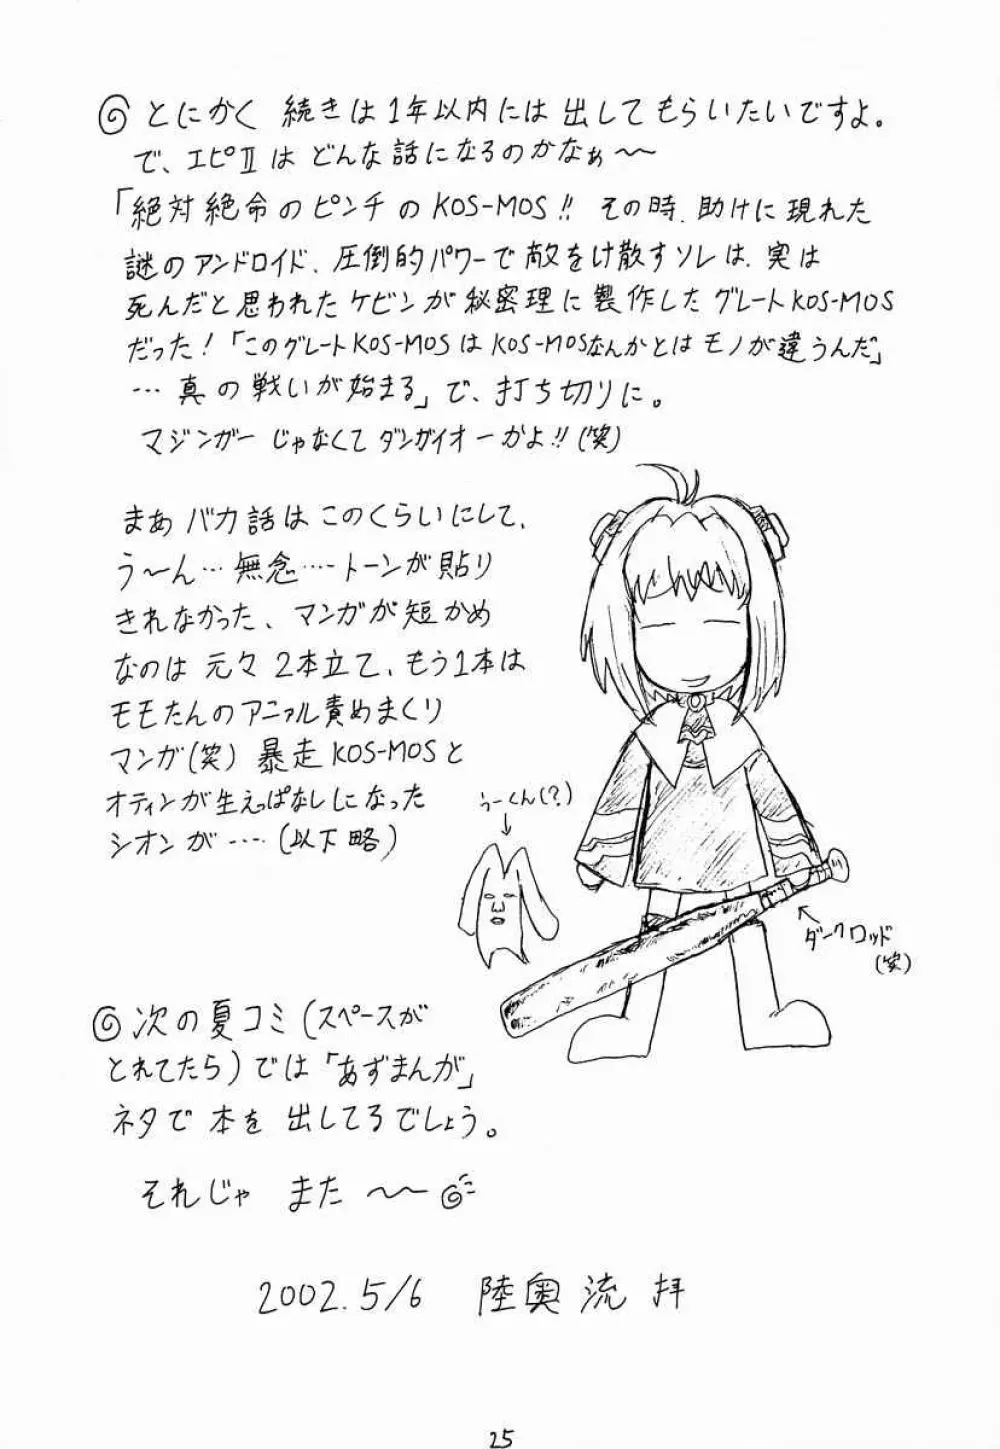 ◎とにかく 続きは1年以内には出してもらいたいですよ。
で、エピⅡはどんな話になるのかなぁ～～
「絶対絶命のピンチのKOS-MOS!! その時、助けに現れた
謎のアンドロイド、圧倒的パワーで敵をけ散すソレは、実は
死んだと思われたケビンが秘密理に製作したグレートKOS-MOS
だった!「このグレートKOS-MOSはKOS-MOSなんかとはモノが違うんだ」
…真の戦いが始まる」で、打ち切りに。
マジンガーじゃなくてダンガイオーかよ!!(笑)
まあバカ話はこのくらいにして、
う～ん…無念……トーンが貼り
きれなかった、マンガが短かめ
なのは元々2本立て、もう1本は
モモたんのアニァル責めまくり
マンガ(笑) 暴走KOS-MOSと
オティンが生えっぱなしになった
シオンが……(以下略)
うーくん(?)
ダークロッド
(笑)
◎次の夏コミ(スペースが
とれてたら)では「あずまんが」
ネタで本を出してるでしょう。
それじゃ また ～～◎
2002.5/6 陸奥流 拝
25